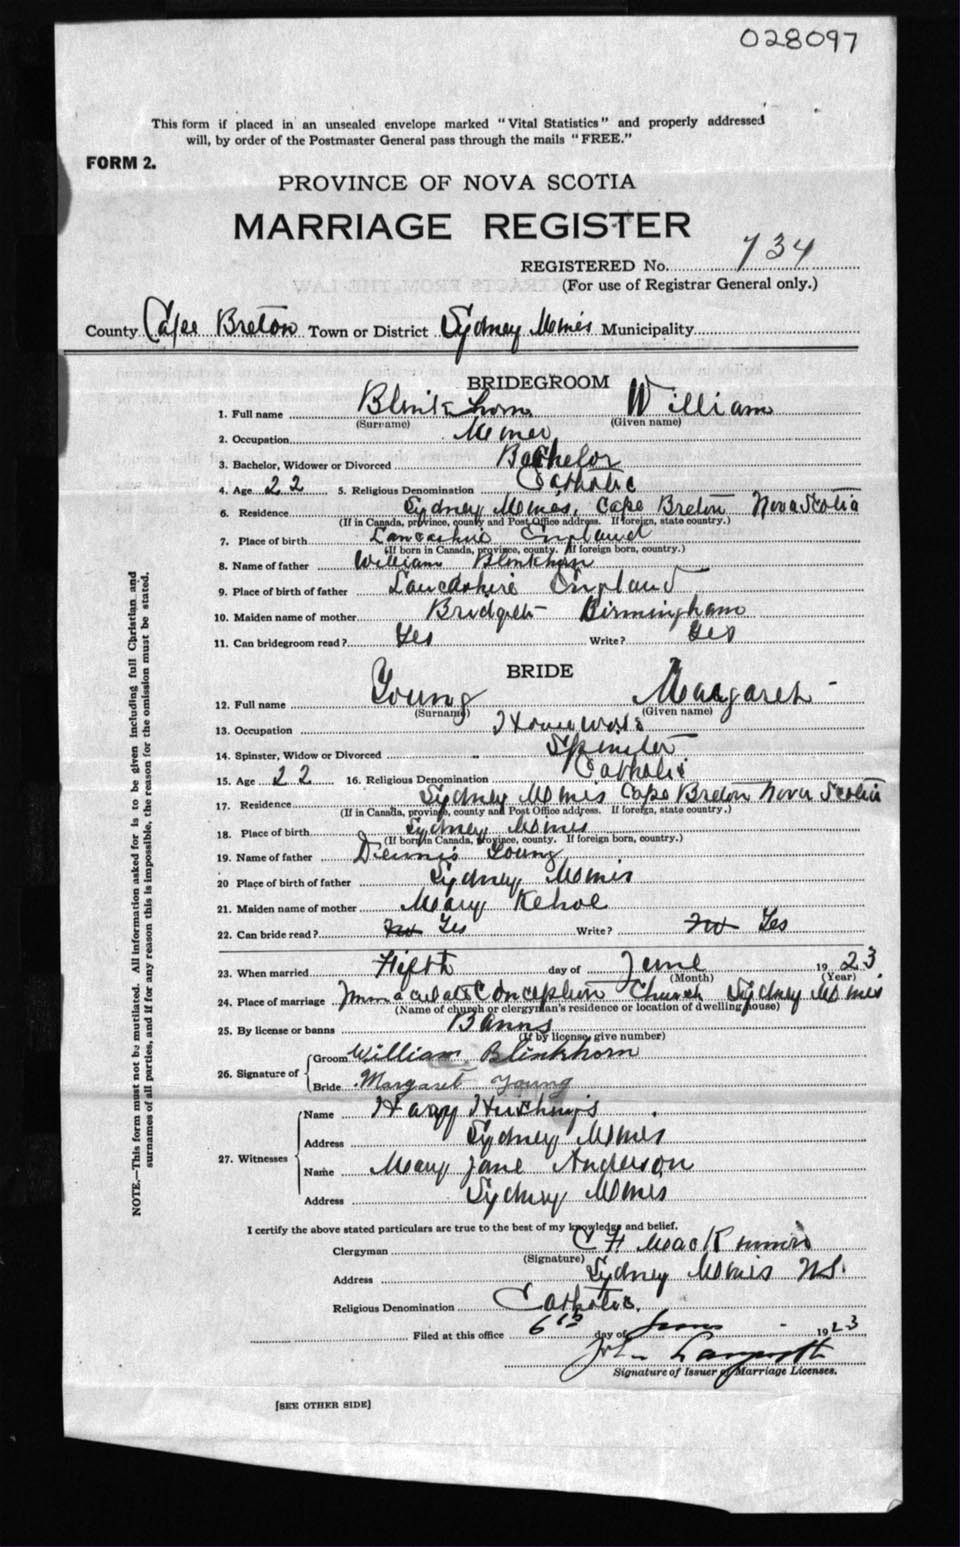 028097
This form if placed in an unsealed envelope marked "Vital Statistics" and properly addressed
will, by order of the Postmaster General pass through the mails "FREE."
FORM 2.
PROVINCE OF NOVA SCOTIA
MARRIAGE REGISTER
REGISTERED No. 734
(For use of Registrar General only.)
County Cape Breton Town or District Sydney Mines Municipality
BRIDEGROOM
1. Full name Blinkhorn William
(Surname) (Given name)
2. Occupation Miner
3. Bachelor, Widower or Divorced Bachelor
4. Age 22 5. Religious Denomination Catholic
6. Residence Sydney Mines, Cape Breton Nova Scotia
(If in Canada, province, county and Post Office address. If foreign, state country.)
7. Place of birth Lancashire England
(If born in Canada, province, county. If foreign born, country.)
8. Name of father William Blinkhorn
9. Place of birth of father Lancashire England
10. Maiden name of mother Bridget Birmingham
11. Can bridegroom read? Yes Write? Yes
BRIDE
12. Full name Young Margaret
(Surname) (Given name)
13. Occupation House work
14. Spinster, Widow or Divorced Spinster
15. Age 22 16. Religious Denomination Catholic
17. Residence Sydney Mines Cape Breton Nova Scotia
(If in Canada, province, county and Post Office address. If foreign, state country.)
18. Place of birth Sydney Mines
(If born in Canada, province, county. If foreign born, country.)
19. Name of father Dennis Young
20 Place of birth of father Sydney Mines
21. Maiden name of mother Mary Kehoe
22. Can bride read? Yes Write? Yes
23. When married Fifth day of June 1923
(Month) (Year)
24. Place of marriage Immaculate Conception Church Sydney Mines
(Name of church or clergyman's residence or location of dwelling house)
25. By license or banns Banns
(If by license, give number)
26. Signature of Groom William Blinkhorn
Bride Margaret Young
27. Witnesses
Name Harry Hutchings
Address Sydney Mines
Name Mary Jane Anderson
Address Sydney Mines
I certify the above stated particulars are true to the best of my knowledge and belief.
Clergyman C F MacKinnon
(Signature)
Address Sydney Mines N.S.
Religious Denomination Catholic.
Filed at this office 6th day of June 1923
John
Signature of Issuer of Marriage Licenses.
[SEE OTHER SIDE]
NOTE.—This form must not be mutilated. All information asked for is to be given including full Christian and
surnames of all parties, and if for any reason this is impossible, the reason for the omission must be stated.